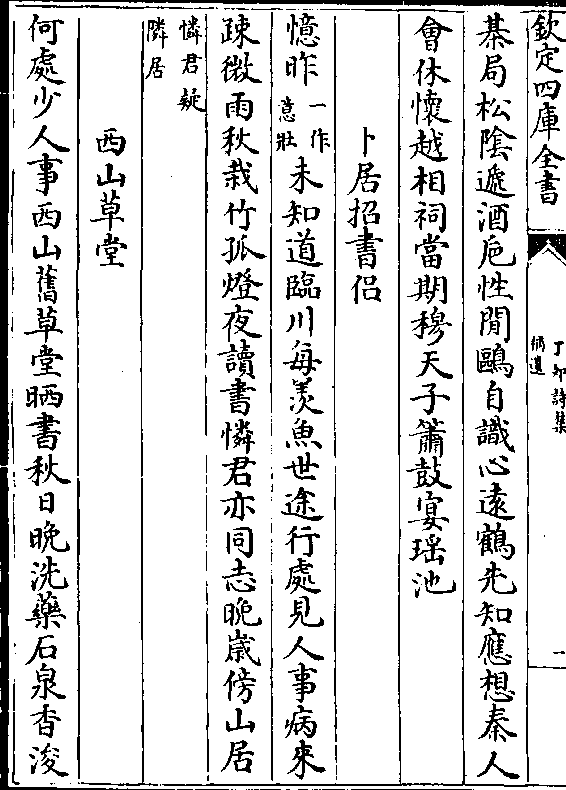 欽定四庫全書
丁卯詩集
補遺
一
棊局松陰遞酒巵性閒鷗自識心遠鶴先知應想秦人
會休懷越相祠當期穆天子簫鼓宴瑶池
卜居招書侶
憶昨
一作
意壯
未知道臨川毎羡魚世途行處見人事病來
疎微雨秋栽竹孤燈夜讀書憐君亦同志晩嵗傍山居
憐君疑
隣居
西山草堂
何處少人事西山舊草堂晒書秋日晩洗藥石泉香浚